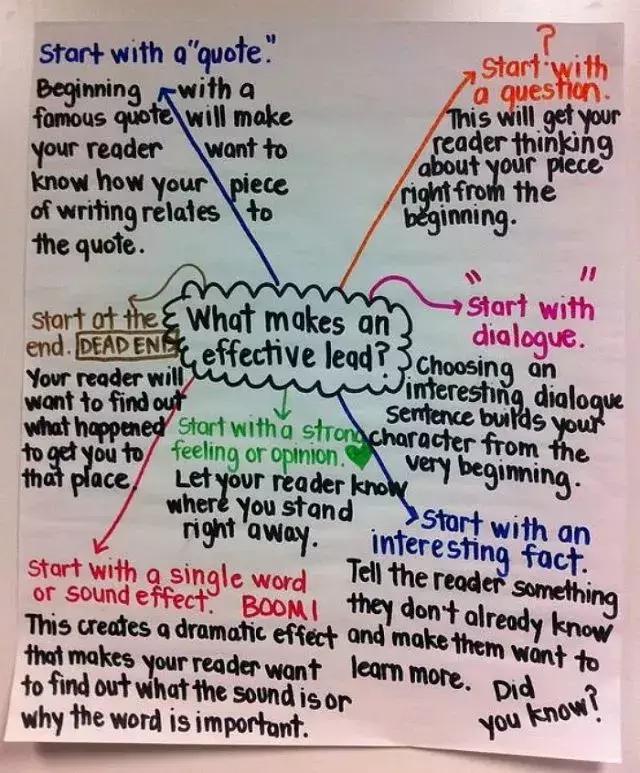 What makes an
effective lead?
Start with a "quote."
Beginning with a
famous quote will make
your reader want to
know how your piece
of writing relates to
the quote.
?
Start with
a question.
This will get your
reader thinking
about your piece
right from the
beginning.
" "
Start with
dialogue.
Choosing an
interesting dialogue
sentence builds your
character from the
very beginning.
Start at the
end. DEAD END
Your reader will
want to find out
what happened
to get you to
that place.
Start with a strong
feeling or opinion.
Let your reader know
where you stand
right away.
Start with an
interesting fact.
Tell the reader something
they don't already know
and make them want to
learn more. Did
you know?
Start with a single word
or sound effect. BOOM!
This creates a dramatic effect
that makes your reader want
to find out what the sound is or
why the word is important.